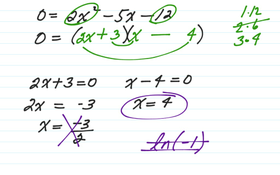 0 = 2x² - 5x - 12
0 = (2x + 3)(x - 4)
1·12
2·6
3·4
2x + 3 = 0
x - 4 = 0
2x = -3
x = 4
x = -3/2
ln(-1)